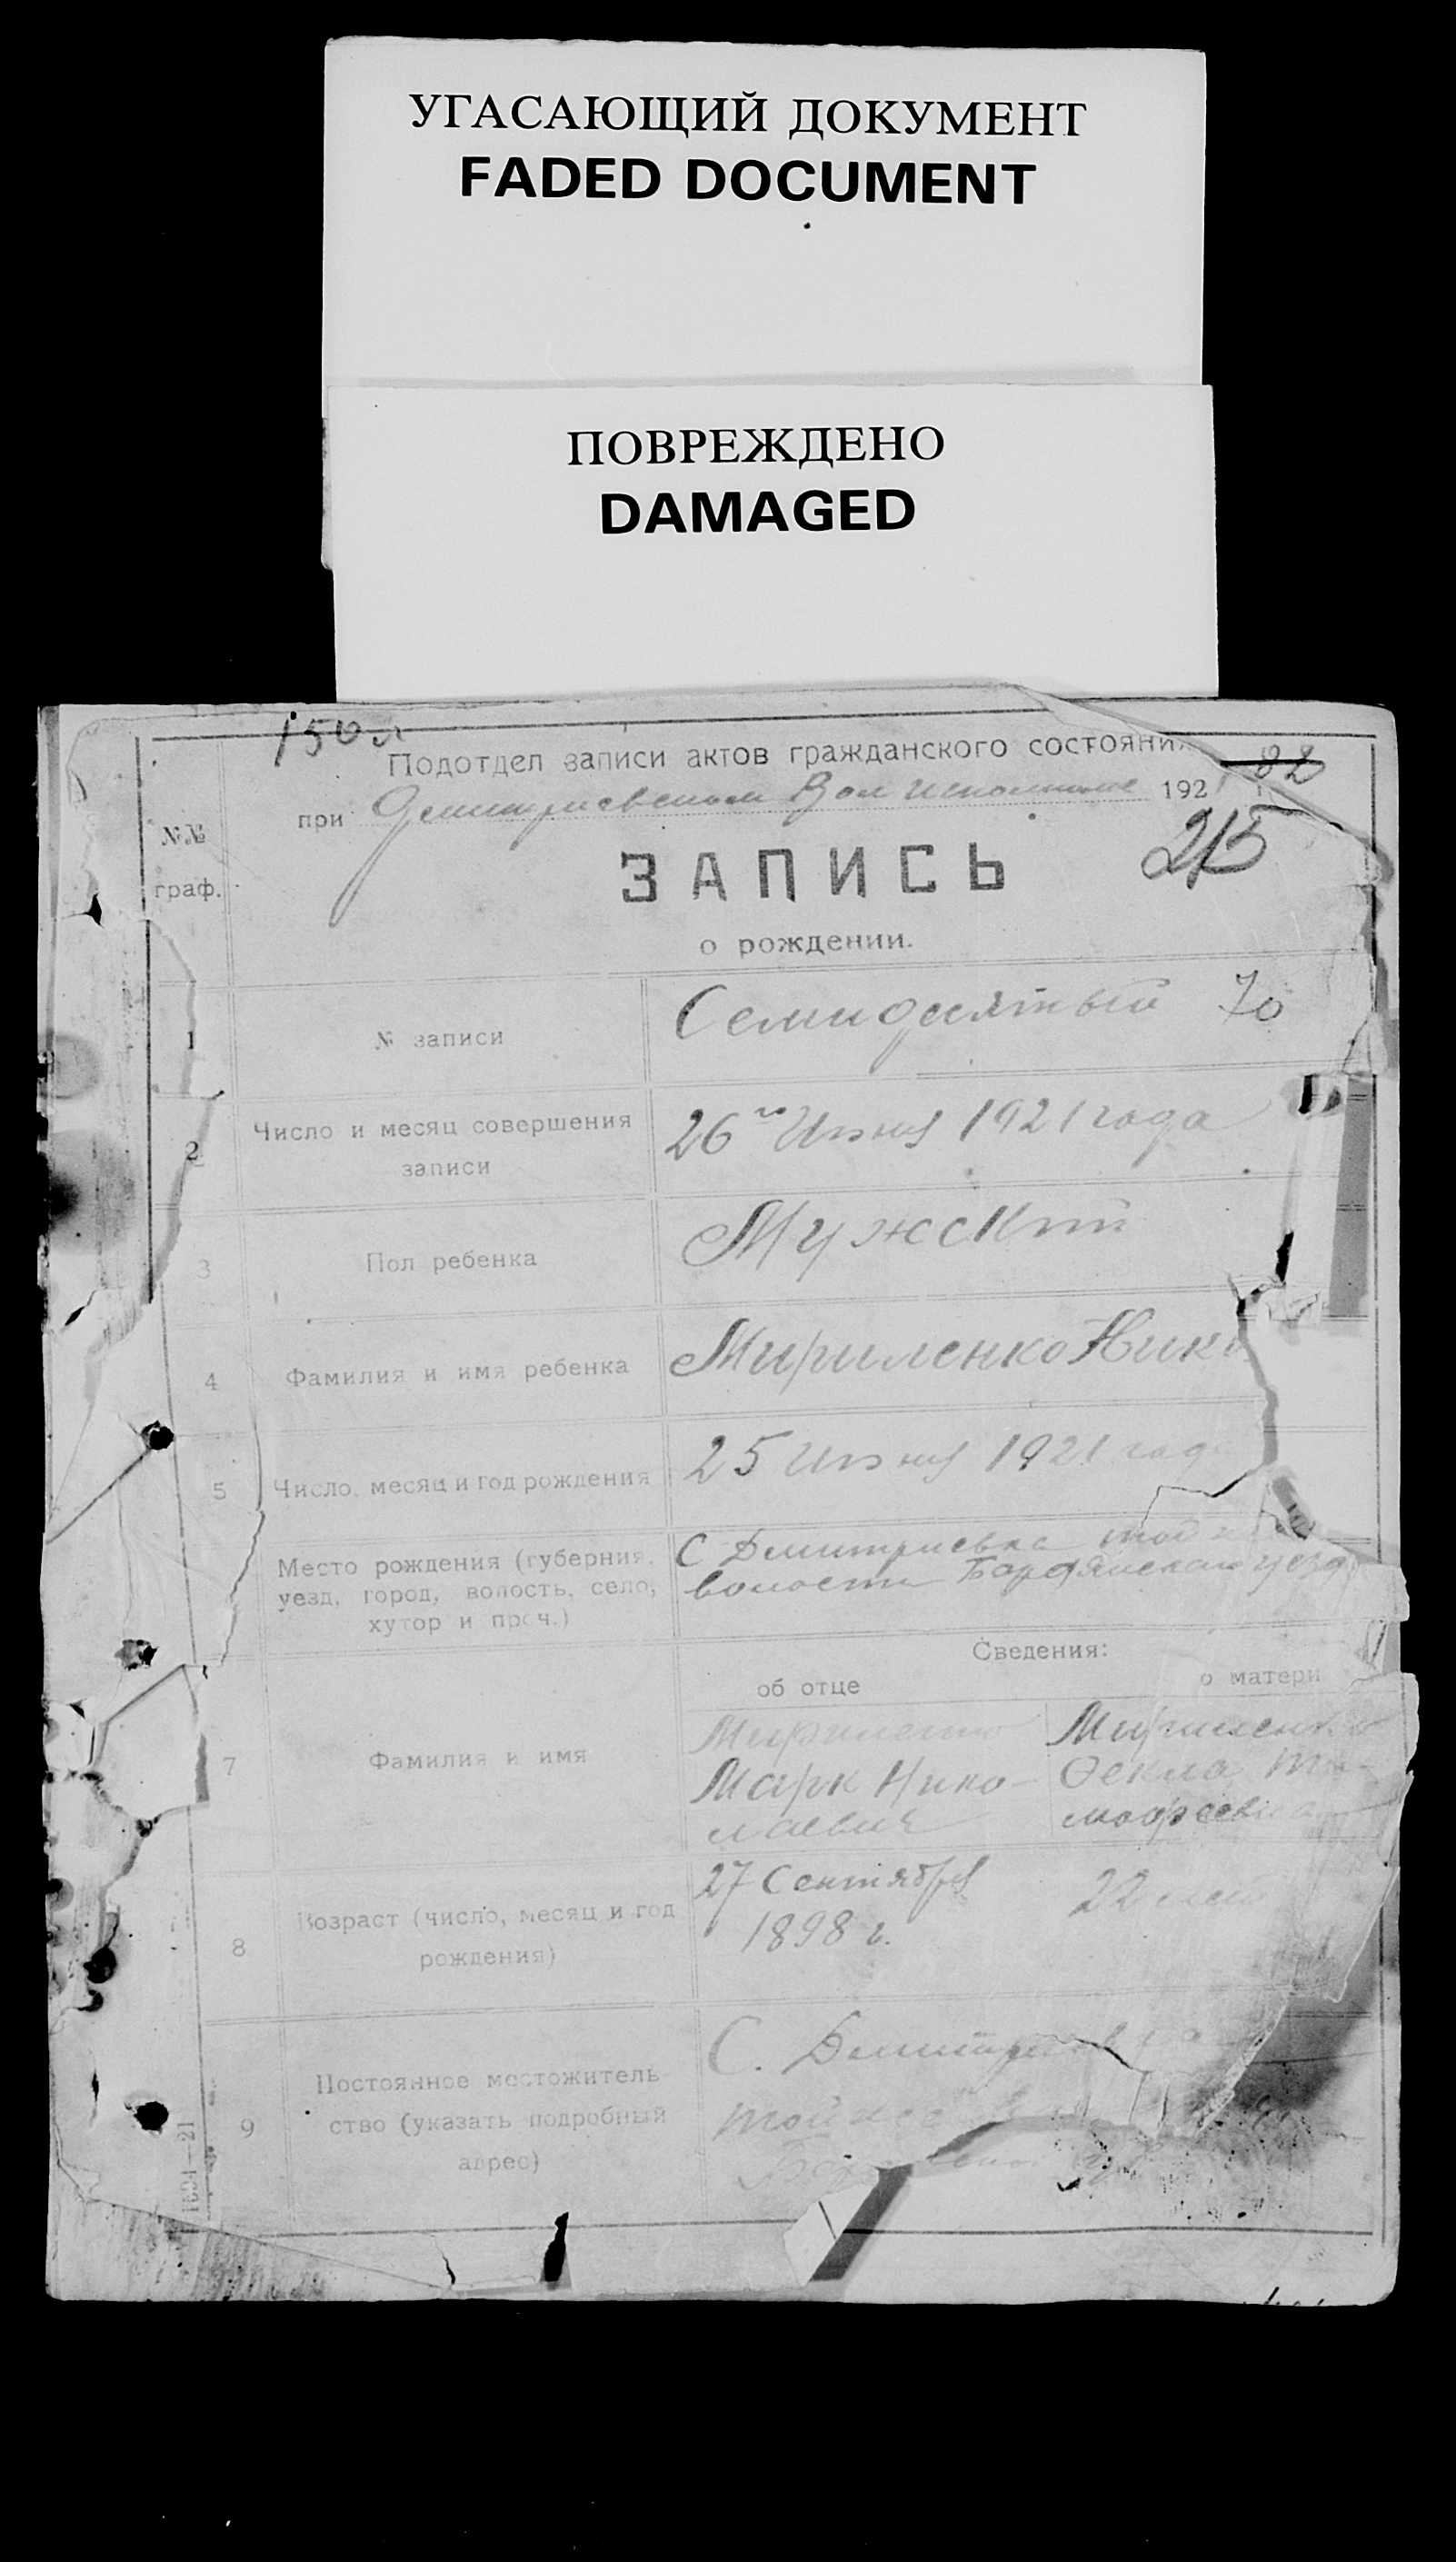 УГАСАЮЩИЙ ДОКУМЕНТ
FADED DOCUMENT
ПОВРЕЖДЕНО
DAMAGED
150 л
Подотдел записи актов гражданского состояния
82
при Дмитриевском Вол исполкоме 1921 г.
№№
граф.
ЗАПИСЬ
215
о рождении.
1
№ записи
Семидесятый 70
2
Число и месяц совершения
записи
26го Июня 1921 года
3
Пол ребенка
Мужской
4
Фамилия и имя ребенка
Мириленко
5
Число, месяц и год рождения
25 Июня 1921 года
Место рождения (губерния,
уезд, город, волость, село,
хутор и проч.)
С Дмитриевка той же
волости Бердянского уезда
Сведения:
об отце
о матери
7
Фамилия и имя
Мириленко
Марк Нико-
лаевич
Мириленко
Фекла
8
Возраст (число, месяц и год
рождения)
27 Сентября
1898 г.
22 лет
9
Постоянное местожитель-
ство (указать подробный
адрес)
С. Дмитриевка
той же
1691—21